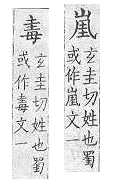 嵐
玄圭切姓也蜀
或作嵐文一
毒
玄圭切姓也蜀
或作毒文一